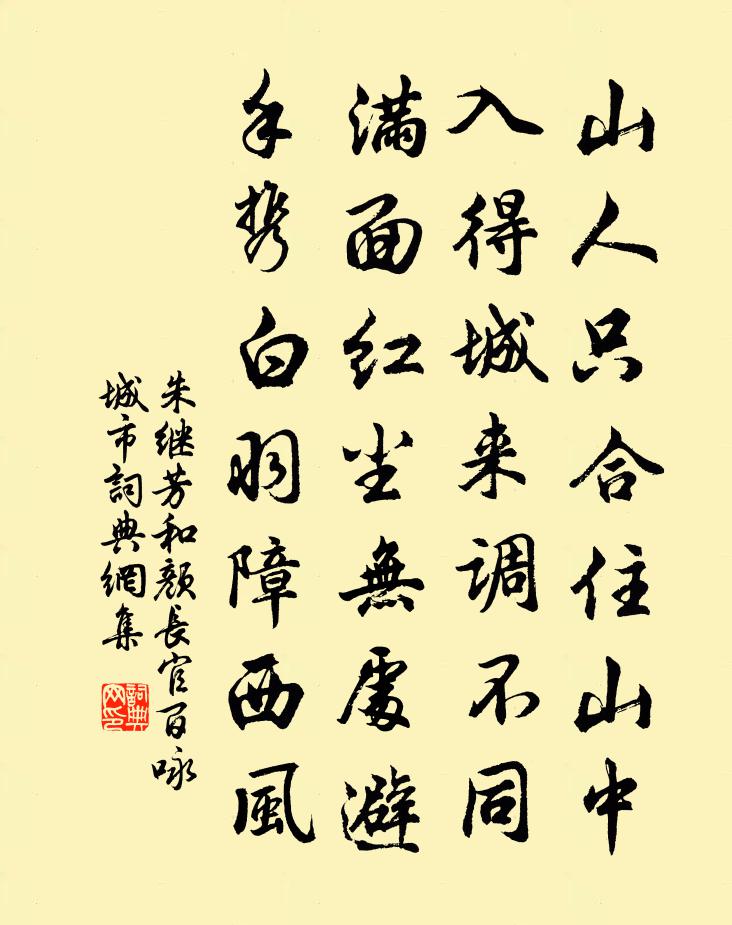 山人只合住山中
入得城来调不同
满面红尘無處避
手携白羽障西風
朱继芳和颜長官百咏
城市詞典網集
詞典
网印